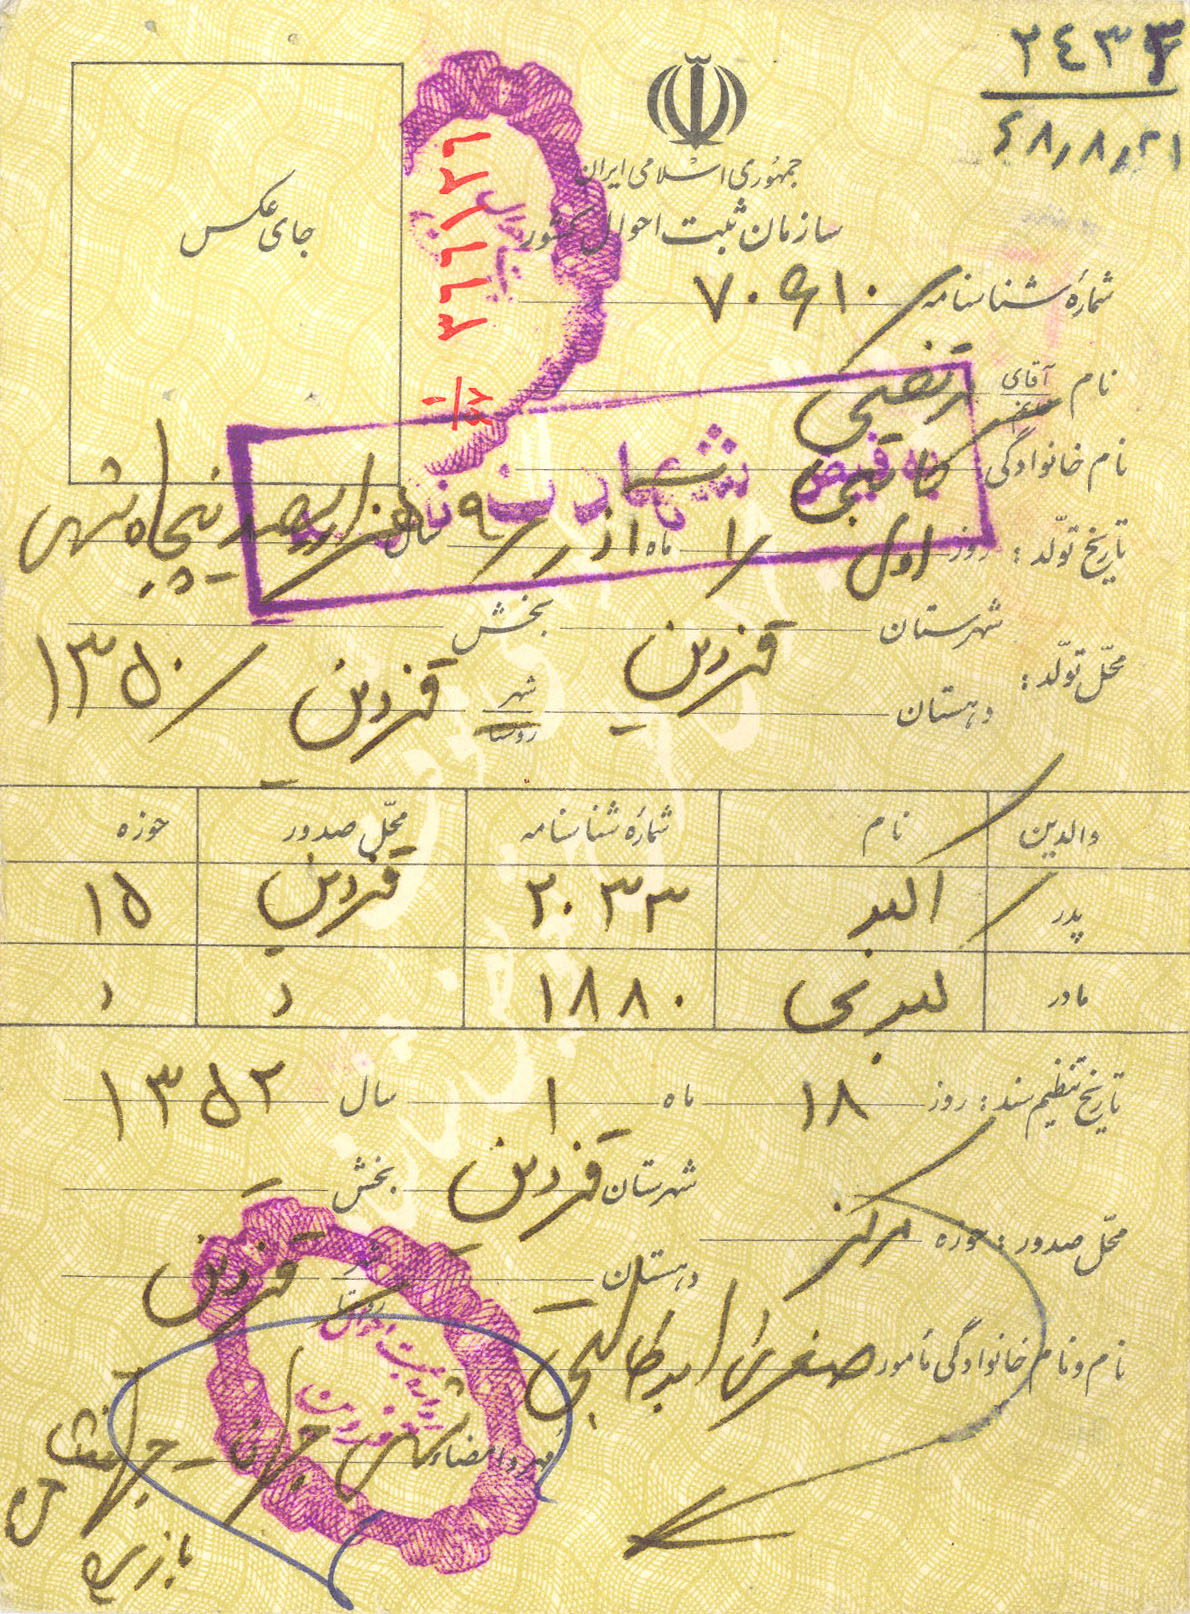 ۲۴۳۳
۶۸٫۸٫۲۱
جمهوری اسلامی ایران
سازمان ثبت احوال کشور
جای عکس
۳۶۱۱۲۶
شماره شناسنامه ۷۰۵۱۰
نام آقای مرتضی
نام خانوادگی
به فیض شهادت نائل
تاریخ تولد : روز اول ۱ ماه آذر ۹ سال هزار سیصد پنجاه شمسی
محل تولد : شهرستان قزوین بخش
دهستان شهر روستا قزوین ۱۳۵۰
والدین نام شماره شناسنامه محل صدور حوزه
پدر اکبر ۲۰۳۳ قزوین ۱۵
مادر کبری ۱۸۸۰ " "
تاریخ تنظیم سند : روز ۱۸ ماه ۱ سال ۱۳۵۲
محل صدور : حوزه مرکز شهرستان قزوین بخش
دهستان شهر روستا قزوین
نام و نام خانوادگی مأمور صغری ابوطالبی
مهر و امضاء